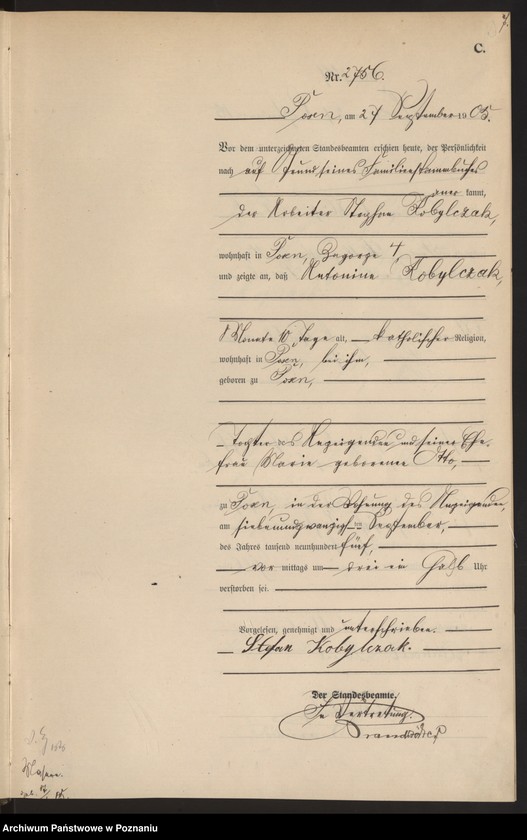 7.
C.
Nr. 2756.
Posen, am 27 September 1905.
Vor dem unterzeichneten Standesbeamten erschien heute, der Persönlichkeit
nach auf Grund seines Familienstammbuches
aner kannt,
der Arbeiter Stephan Kobylczak,
wohnhaft in Posen, Zagorze 4
und zeigte an, daß Antonina Kobylczak,
8 Monate 10 Tage alt, katholischer Religion,
wohnhaft in Posen, bei ihm,
geboren zu Posen,
Tochter des Anzeigenden und seiner Ehe-
frau Marie geborenen Otto,
zu Posen, in der Wohnung des Anzeigenden,
am siebenundzwanzigsten September,
des Jahres tausend neunhundert fünf,
vor mittags um drei ein halb Uhr
verstorben sei.
Vorgelesen, genehmigt und unterschrieben.
Stefan Kobylczak.
Der Standesbeamte.
In Vertretung.
Archiwum Państwowe w Poznaniu